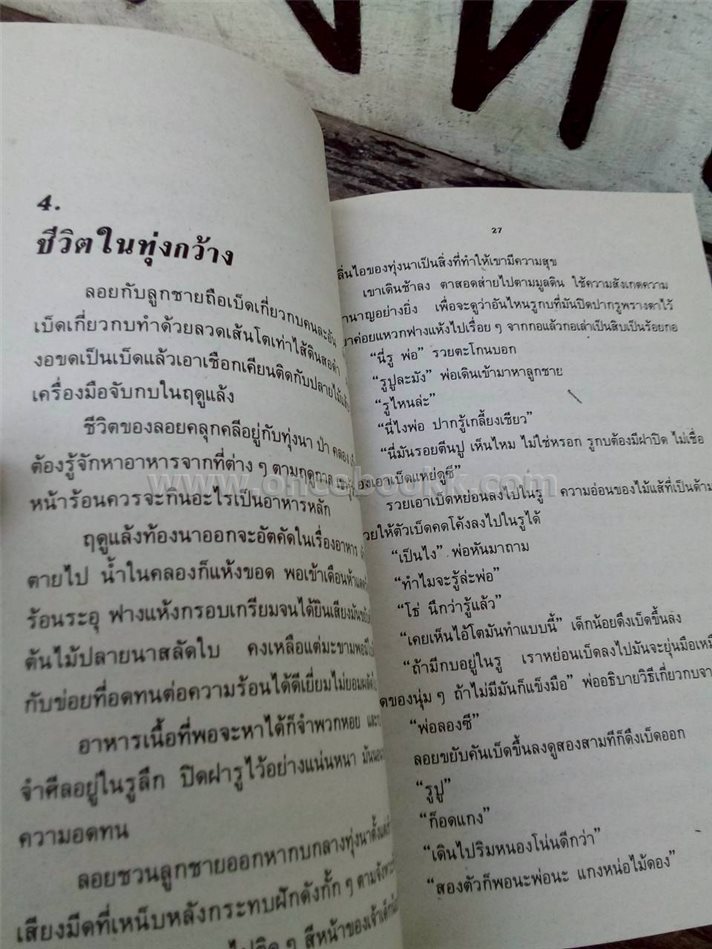 4.
ชีวิตในทุ่งกว้าง
ลอยกับลูกชายถือเบ็ดเกี่ยวกบคนละอัน
เบ็ดเกี่ยวกบทำด้วยลวดเส้นโตเท่าไส้ดินสอดำ
งอขดเป็นเบ็ดแล้วเอาเชือกเคียนติดกับปลายไม้
เครื่องมือจับกบในฤดูแล้ง
ชีวิตของลอยคลุกคลีอยู่กับทุ่งนา ป่า คลอง
ต้องรู้จักหาอาหารจากที่ต่าง ๆ ตามฤดูกาล
หน้าร้อนควรจะกินอะไรเป็นอาหารหลัก
ฤดูแล้งท้องนาออกจะอัตคัดในเรื่องอาหาร
ตายไป น้ำในคลองก็แห้งขอด พอเข้าเดือนห้า
ร้อนระอุ ฟางแห้งกรอบเกรียมจนได้ยินเสียงมัน
ต้นไม้ปลายนาสลัดใบ คงเหลือแต่มะขาม
กับข่อยที่อดทนต่อความร้อนได้ดีเยี่ยมไม่ยอม
อาหารเนื้อที่พอจะหาได้ก็จำพวกหอย และ
จำศีลอยู่ในรูลึก ปิดฝารูไว้อย่างแน่นหนา
ความอดทน
ลอยชวนลูกชายออกหากบกลางทุ่งนาตั้งแต่
เสียงมีดที่เหน็บหลังกระทบฝักดังกั้ก ๆ
ๆ สีหน้าของเจ้าเด็ก
27
กลิ่นไอของทุ่งนาเป็นสิ่งที่ทำให้เขามีความสุข
เขาเดินช้าลง ตาสอดส่ายไปตามมูลดิน ใช้ความสังเกตความ
ชำนาญอย่างยิ่ง เพื่อจะดูว่าอันไหนรูกบที่มันปิดปากรูพรางตาไว้
ค่อยแหวกฟางแห้งไปเรื่อย ๆ จากกอแล้วกอเล่าเป็นสิบเป็นร้อยกอ
“นี่รู พ่อ” รวยตะโกนบอก
“รูปูละมัง” พ่อเดินเข้ามาหาลูกชาย
“รูไหนล่ะ”
“นี่ไงพ่อ ปากรูเกลี้ยงเชียว”
“นี่มันรอยตีนปู เห็นไหม ไม่ใช่หรอก รูกบต้องมีฝาปิด ไม่เชื่อ
ลองเอาเบ็ดแหย่ดูซี”
รวยเอาเบ็ดหย่อนลงไปในรู ความอ่อนของไม้แส้ที่เป็นด้าม
ช่วยให้ตัวเบ็ดคดโค้งลงไปในรูได้
“เป็นไง” พ่อหันมาถาม
“ทำไมจะรู้ล่ะพ่อ”
“โธ่ นึกว่ารู้แล้ว”
“เคยเห็นไอ้โตมันทำแบบนี้” เด็กน้อยดึงเบ็ดขึ้นลง
“ถ้ามีกบอยู่ในรู เราหย่อนเบ็ดลงไปมันจะยุ่นมือ
ของนุ่ม ๆ ถ้าไม่มีมันก็แข็งมือ” พ่ออธิบายวิธีเกี่ยวกบ
“พ่อลองซี”
ลอยขยับคันเบ็ดขึ้นลงดูสองสามทีก็ดึงเบ็ดออก
“รูปู”
“ก็อดแกง”
“เดินไปริมหนองโน่นดีกว่า”
“สองตัวก็พอนะพ่อนะ แกงหน่อไม้ดอง”